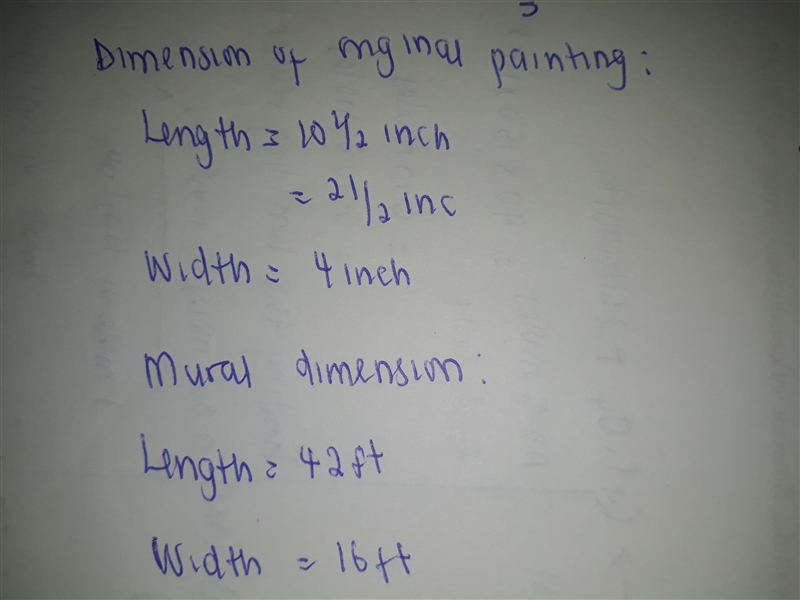 Dimension of original painting:
Length = 10 1/2 inch
= 21/2 inc
Width = 4 inch
Mural dimension:
Length = 42 ft
Width = 16 ft